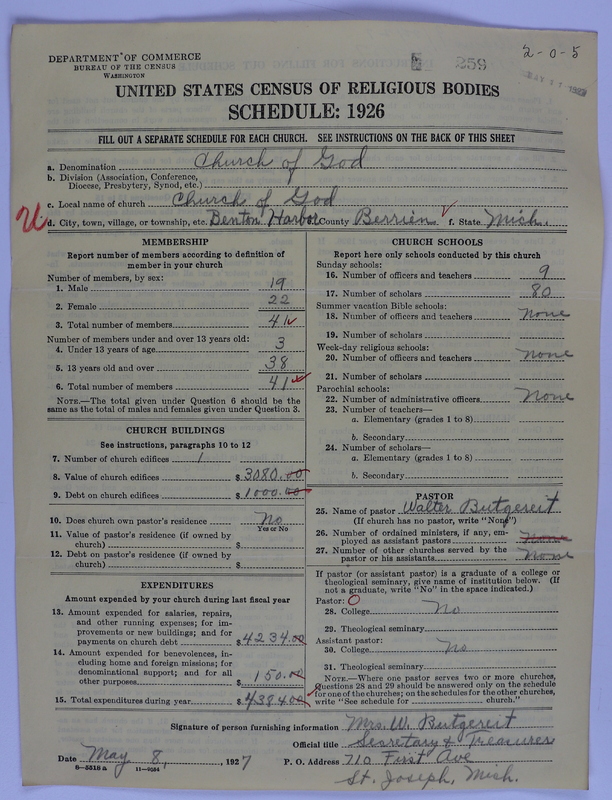 DEPARTMENT OF COMMERCE
BUREAU OF THE CENSUS
WASHINGTON
259
2-0-5
UNITED STATES CENSUS OF RELIGIOUS BODIES
SCHEDULE: 1926
FILL OUT A SEPARATE SCHEDULE FOR EACH CHURCH. SEE INSTRUCTIONS ON THE BACK OF THIS SHEET
a. Denomination Church of God
b. Division (Association, Conference,
Diocese, Presbytery, Synod, etc.)
c. Local name of church Church of God
U
d. City, town, village, or township, etc. Benton Harbor County Berrien f. State Mich.
MEMBERSHIP
Report number of members according to definition of
member in your church
Number of members, by sex:
1. Male 19
2. Female 22
3. Total number of members 41
Number of members under and over 13 years old:
4. Under 13 years of age 3
5. 13 years old and over 38
6. Total number of members 41
NOTE.—The total given under Question 6 should be
same as the total of males and females given under Question 3.
CHURCH BUILDINGS
See instructions, paragraphs 10 to 12
7. Number of church edifices 1
8. Value of church edifices $ 3080.00
9. Debt on church edifices $ 1000.00
10. Does church own pastor's residence No
Yes or No
11. Value of pastor's residence (if owned by
church) $
12. Debt on pastor's residence (if owned by
church) $
EXPENDITURES
Amount expended by your church during last fiscal year
13. Amount expended for salaries, repairs,
and other running expenses; for im-
provements or new buildings; and for
payments on church debt $ 4234.00
14. Amount expended for benevolences, in-
cluding home and foreign missions; for
denominational support; and for all
other purposes $ 150.00
15. Total expenditures during year $ 4384.00
CHURCH SCHOOLS
Report here only schools conducted by this church
Sunday schools:
16. Number of officers and teachers 9
17. Number of scholars 80
Summer vacation Bible schools:
18. Number of officers and teachers None
19. Number of scholars
Week-day religious schools:
20. Number of officers and teachers none
21. Number of scholars
Parochial schools:
22. Number of administrative officers None
23. Number of teachers—
a. Elementary (grades 1 to 8)
b. Secondary
24. Number of scholars—
a. Elementary (grades 1 to 8)
b. Secondary
PASTOR
25. Name of pastor Walter Butgereit
(If church has no pastor, write "None")
26. Number of ordained ministers, if any, em-
ployed as assistant pastors None
27. Number of other churches served by the
pastor or his assistants None
If pastor (or assistant pastor) is a graduate of a college or
theological seminary, give name of institution below. (If
not a graduate, write "No" in the space indicated.)
Pastor:
28. College No
29. Theological seminary
Assistant pastor:
30. College No
31. Theological seminary
NOTE.—Where one pastor serves two or more churches,
Questions 28 and 29 should be answered only on the schedule
for one of the churches; on the schedules for the other churches,
write "See schedule for church."
Signature of person furnishing information Mrs. W. Butgereit
Official title Secretary & Treasurer
Date May 8, 1927 P. O. Address 710 First Ave
8-5518 a 11-9084 St. Joseph, Mich.